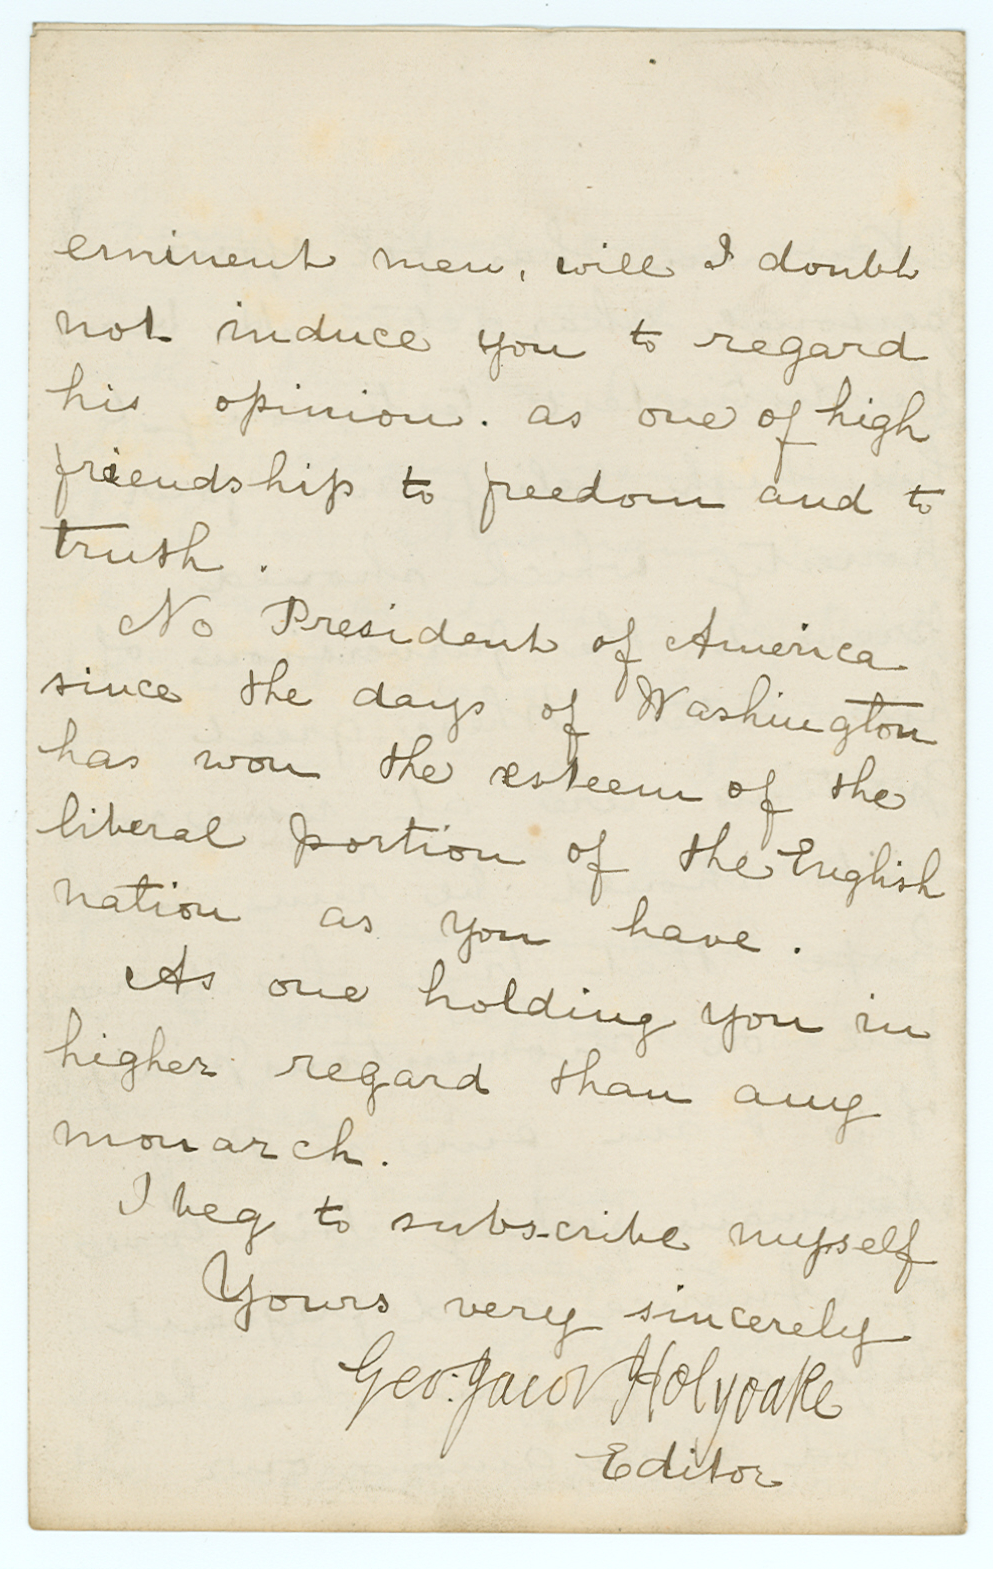 eminent men, will I doubt
not induce you to regard
his opinion. as one of high
friendship to freedom and to
truth.
No President of America
since the days of Washington
has won the esteem of the
liberal portion of the English
nation as you have.
As one holding you in
higher regard than any
monarch.
I beg to subscribe myself
Yours very sincerely
Geo: Jacob Holyoake
Editor